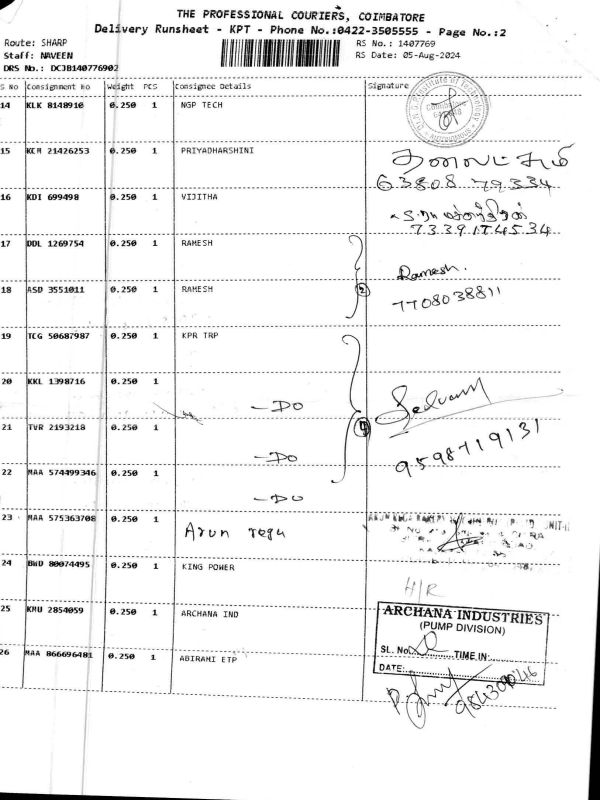 THE PROFESSIONAL COURIERS, COIMBATORE
Delivery Runsheet - KPT - Phone No.:0422-3505555 - Page No.:2
Route: SHARP
RS No.: 1407769
Staff: NAVEEN
RS Date: 05-Aug-2024
DRS No.: DCJB140776902
S No Consignment No Weight PCS Consignee Details Signature
14 KLK 8148910 0.250 1 NGP TECH
15 KCM 21426253 0.250 1 PRIYADHARSHINI
63808 79334
16 KDI 699498 0.250 1 VIJITHA
7339174534
17 DDL 1269754 0.250 1 RAMESH
Ramesh.
18 ASD 3551011 0.250 1 RAMESH 2
7708038811
19 TCG 50687987 0.250 1 KPR TRP
20 KKL 1398716 0.250 1 - DO
21 TVR 2193218 0.250 1 - DO 4
9598719131
22 MAA 574499346 0.250 1 - DO
23 MAA 575363708 0.250 1 Arun
24 BWD 80074495 0.250 1 KING POWER
H/R
25 KMU 2854059 0.250 1 ARCHANA IND
ARCHANA INDUSTRIES
(PUMP DIVISION)
SL. No. TIME IN:
DATE:
26 MAA 866696481 0.250 1 ABIRAMI ETP